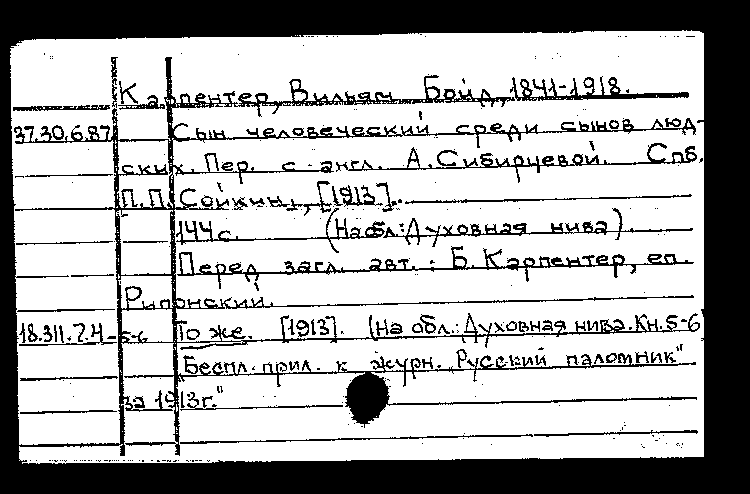 Карпентер, Вильям Бойд, 1841-1918.
37.30.6.87 Сын человеческий среди сынов люд-
ских. Пер. с англ. А. Сибирцевой. Спб.
П.П. Сойкин, [1913].
144 с. (На обл.: Духовная нива).
Перед загл. авт.: Б. Карпентер, еп.
Рипонский.
18.311.7.4-5-6 То же. [1913]. (На обл.: Духовная нива. Кн. 5-6
"Беспл. прил. к журн. "Русский паломник"
за 1913 г."